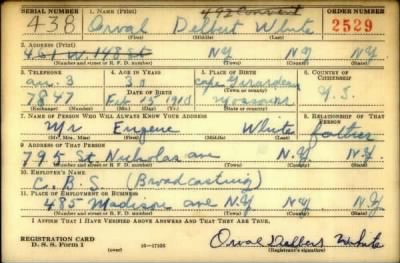 SERIAL NUMBER 1. NAME (Print) ORDER NUMBER
438 Orval Delbert White 2529
(First) (Middle) (Last)
2. ADDRESS (Print)
N.Y. N.Y. N.Y.
(Number and street or R. F. D. number) (Town) (County) (State)
3. TELEPHONE 4. AGE IN YEARS 5. PLACE OF BIRTH 6. COUNTRY OF CITIZENSHIP
Au. 3 Cape Girardeau
(Town or county)
DATE OF BIRTH
7847 Feb. 15 1910 Missouri U.S.
(Exchange) (Number) (Mo.) (Day) (Yr.) (State or country)
7. NAME OF PERSON WHO WILL ALWAYS KNOW YOUR ADDRESS 8. RELATIONSHIP OF THAT PERSON
Mr Eugene White father
(Mr., Mrs., Miss) (First) (Middle) (Last)
9. ADDRESS OF THAT PERSON
795 St. Nicholas ave N.Y. N.Y.
(Number and street or R. F. D. number) (Town) (County) (State)
10. EMPLOYER'S NAME
C.B.S. (Broadcasting)
11. PLACE OF EMPLOYMENT OR BUSINESS
485 Madison ave N.Y. N.Y.
(Number and street or R. F. D. number) (Town) (County) (State)
I AFFIRM THAT I HAVE VERIFIED ABOVE ANSWERS AND THAT THEY ARE TRUE.
REGISTRATION CARD
D. S. S. Form 1 (over) 16—17105 Orval Delbert White
(Registrant's signature)